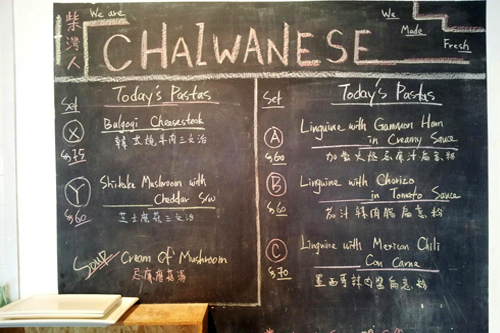 柴灣人
We are
CHAIWANESE
We
Made
Fresh
Set
Today's Pastas
X
$75
Bulgogi Cheesesteak
Y
$60
Shiitake Mushroom with
Cheddar S/W
芝士蘑菇三文治
Soup
Cream Of Mushroom
忌廉蘑菇湯
Set
Today's Pastas
A
$60
Linguine with Gammon Ham
in Creamy Sauce
B
$60
Linguine with Chorizo
in Tomato Sauce
茄汁辣肉腸扁意粉
C
$70
Linguine with Mexican Chili
Con Carne
墨西哥辣肉醬扁意粉